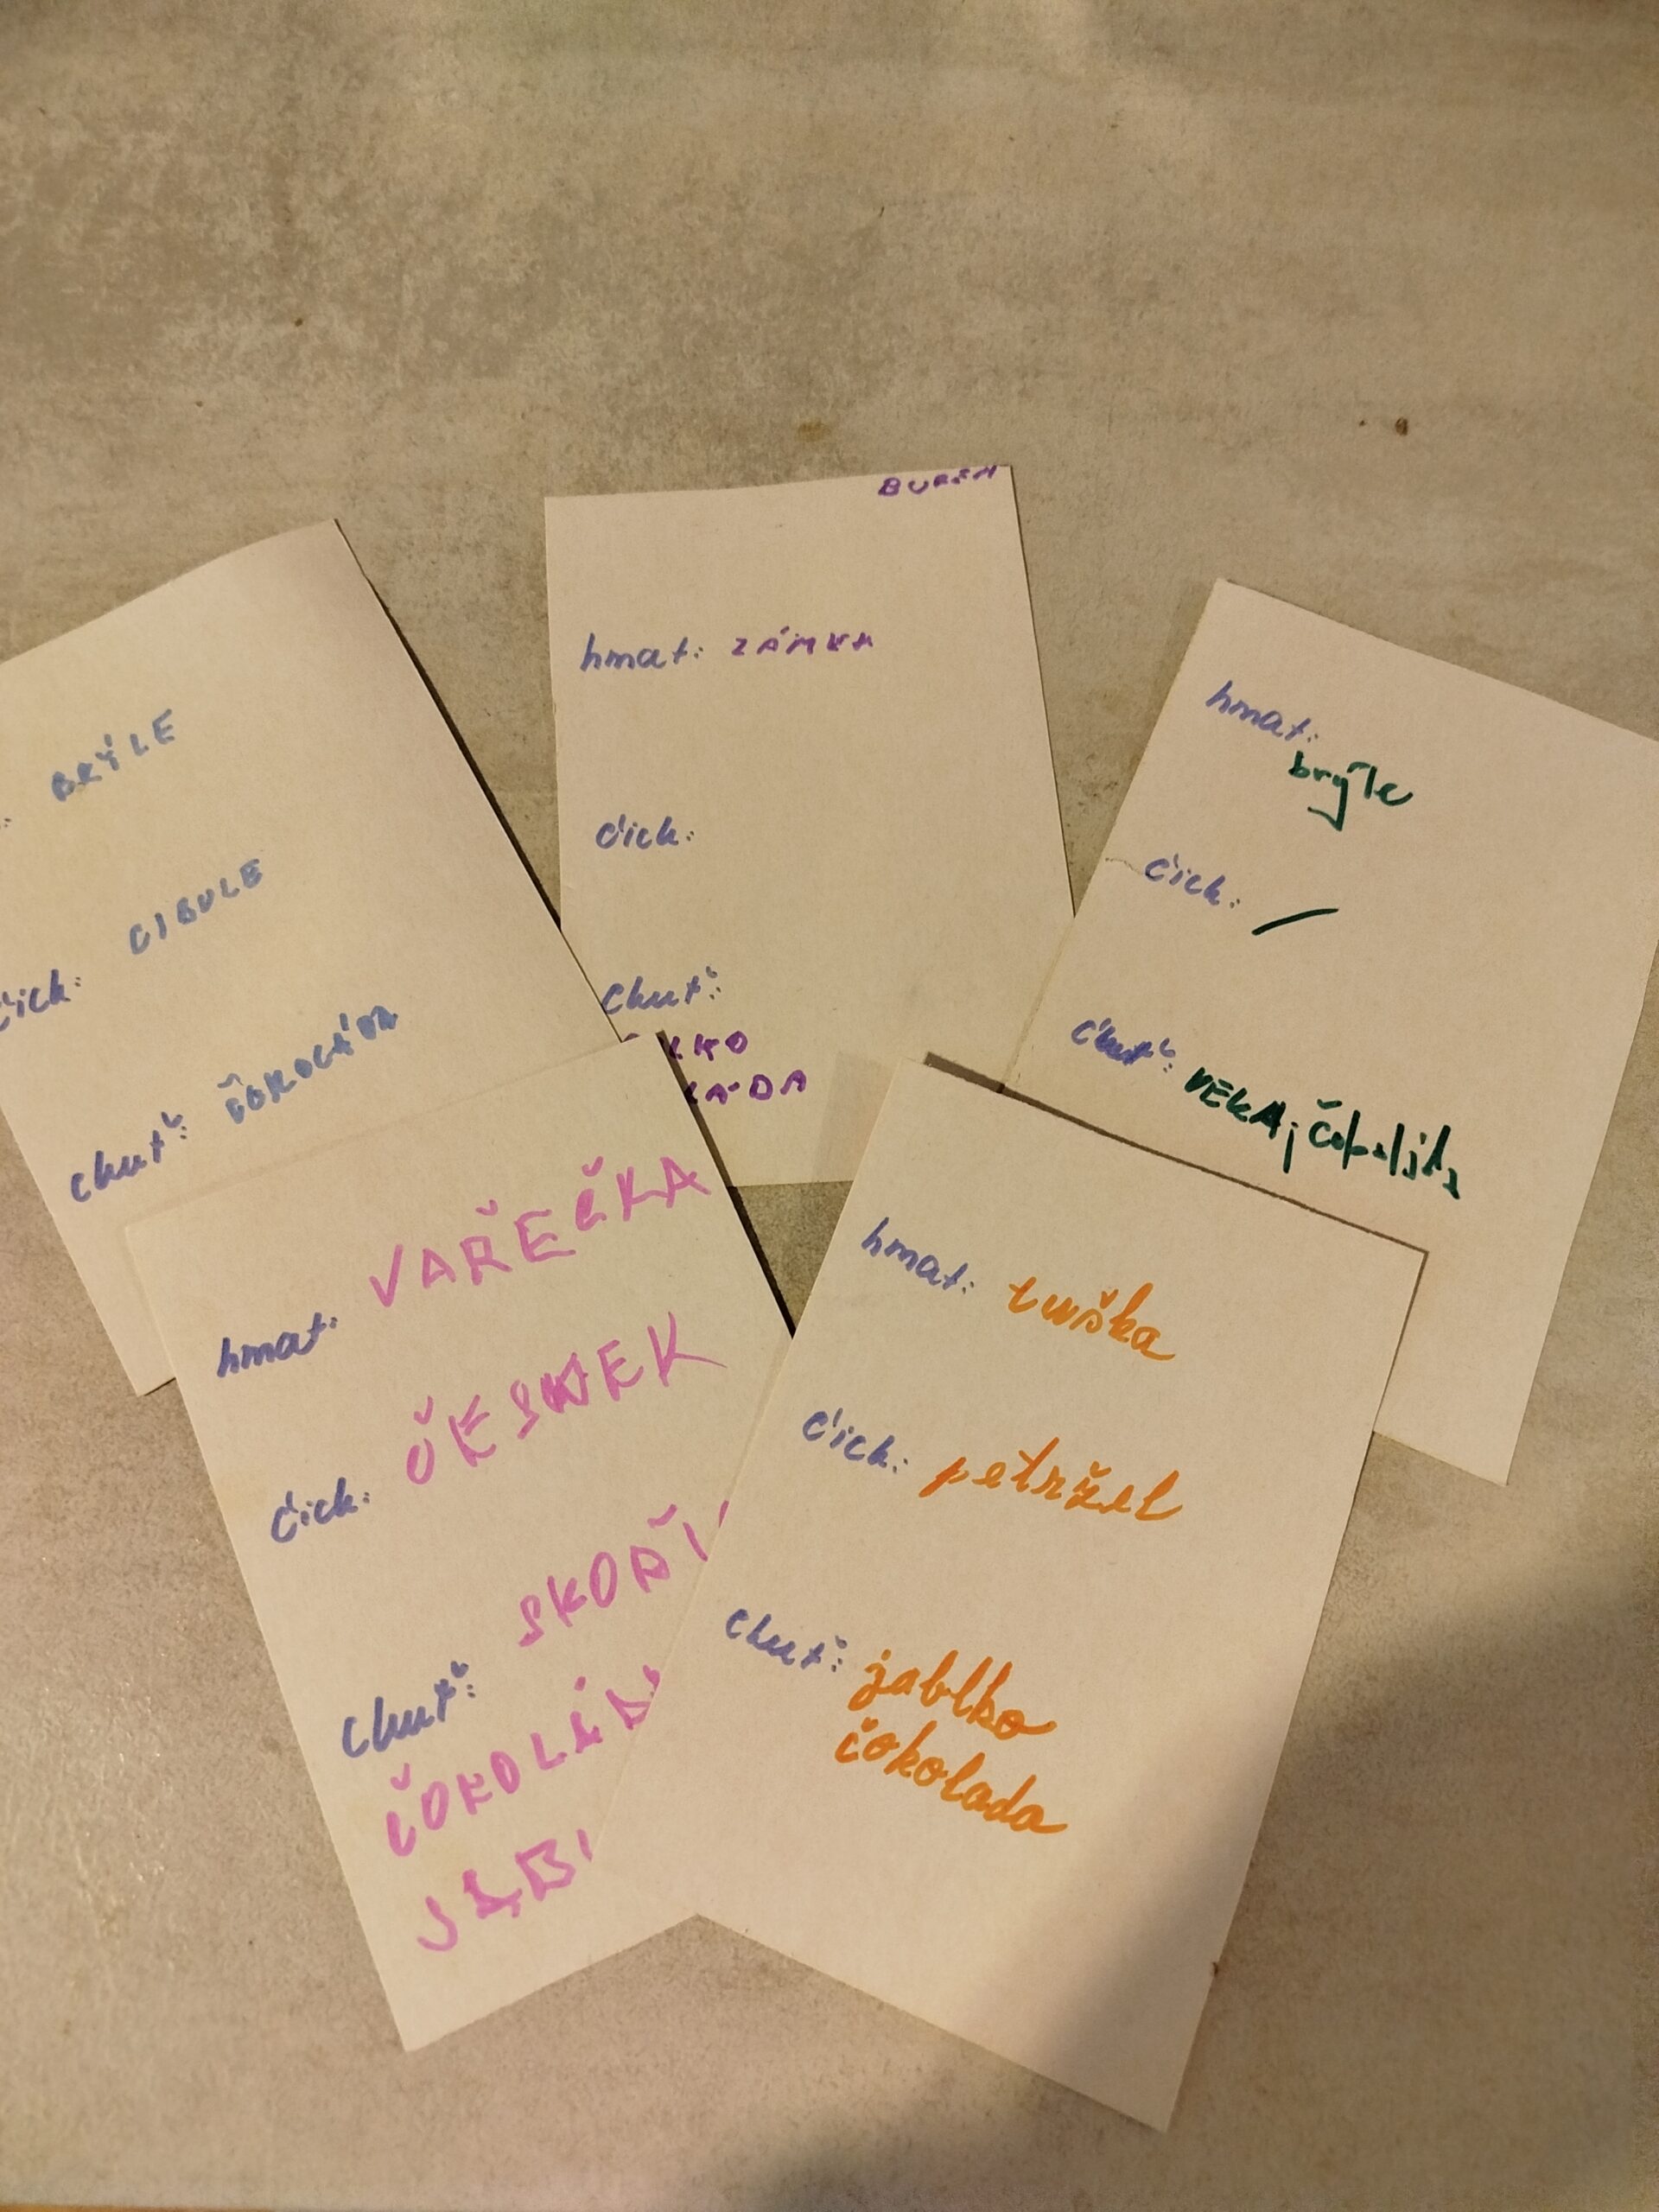 BRÝLE
čich: CIBULE
chuť: ČOKOLÁDA
hmat: ZÁMKA
čich:
chuť:
hmat:
brýle
čich: /
chuť: VEKA, čokoláda
hmat: VAŘEČKA
čich: ČESNEK
chuť: SKOŘI
ČOKOLÁD
JAB
hmat: tuška
čich: petržel
chuť: jablko
čokolada